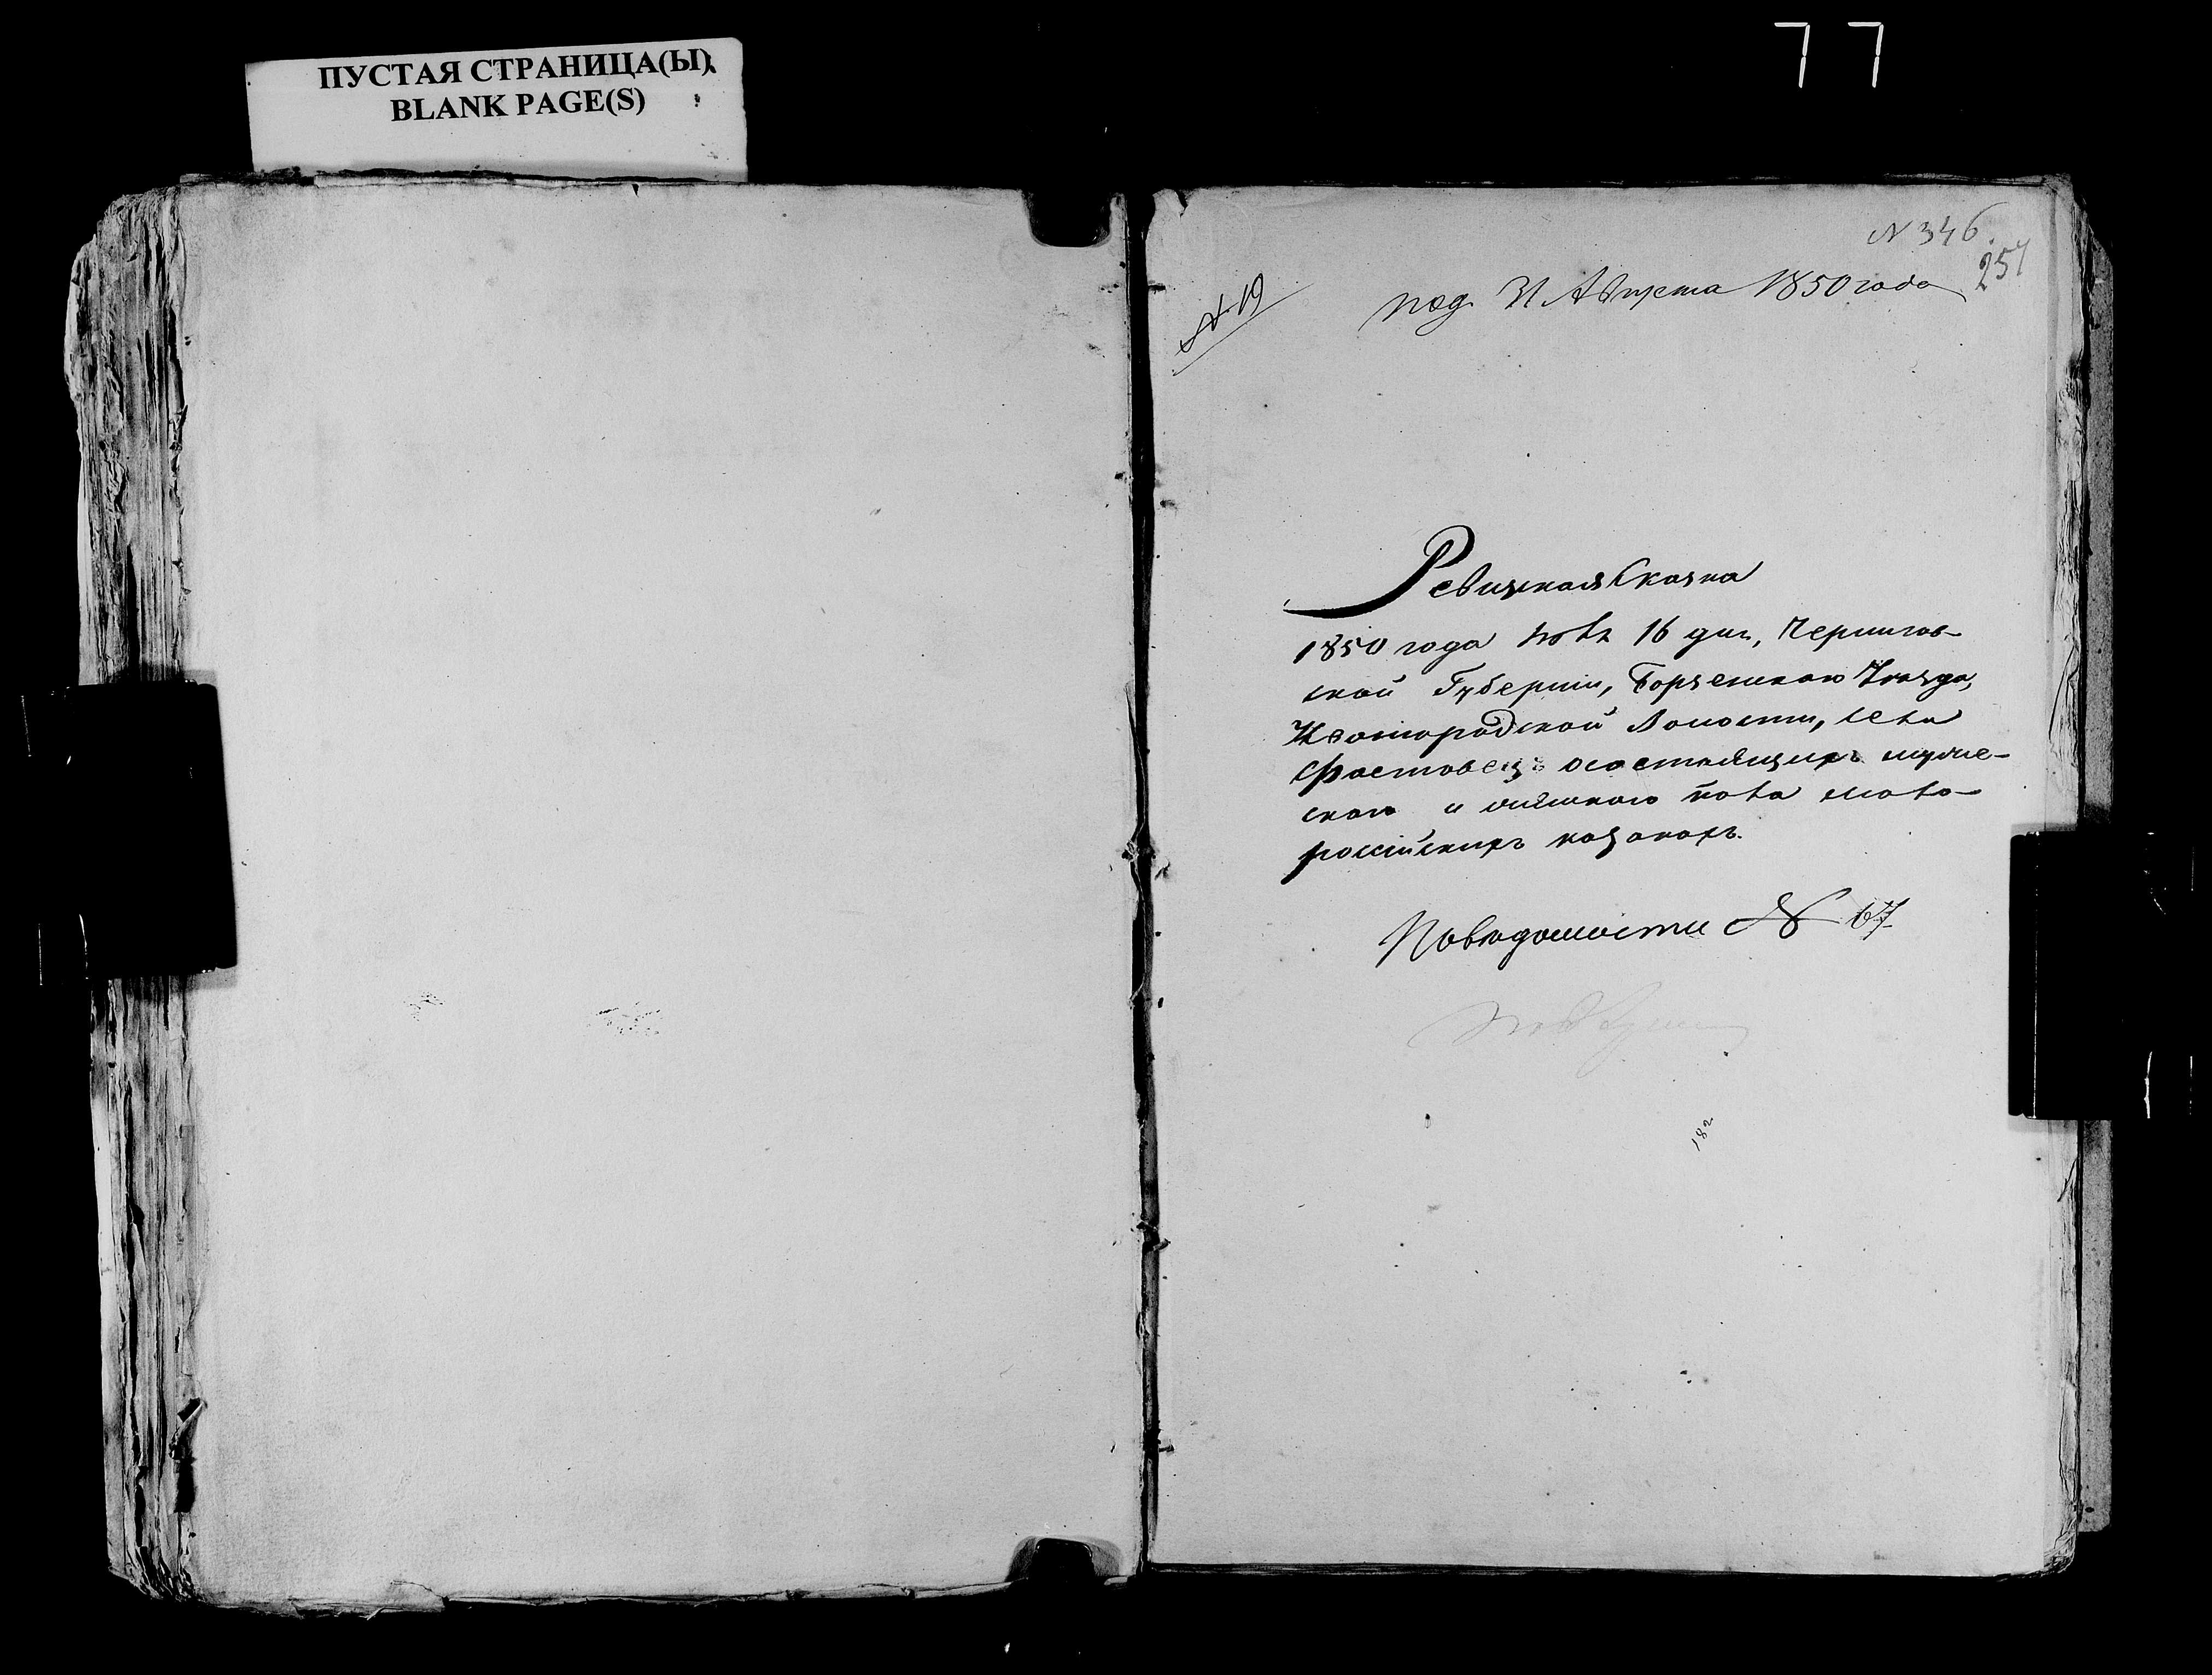 ПУСТАЯ СТРАНИЦА(Ы)
BLANK PAGE(S)
77
N 346.
257
№ 19
под. 31 Августа 1850 года
Ревизская Сказка
1850 года Іюля 16 дня, Чернигов-
ской Губерніи, Борзенскаго Уѣзда,
Ивангородской Волости, села
Фастовецъ о состоящихъ мужес-
каго и женскаго пола мало-
россійскихъ козакахъ.
По вѣдомости № 67
182